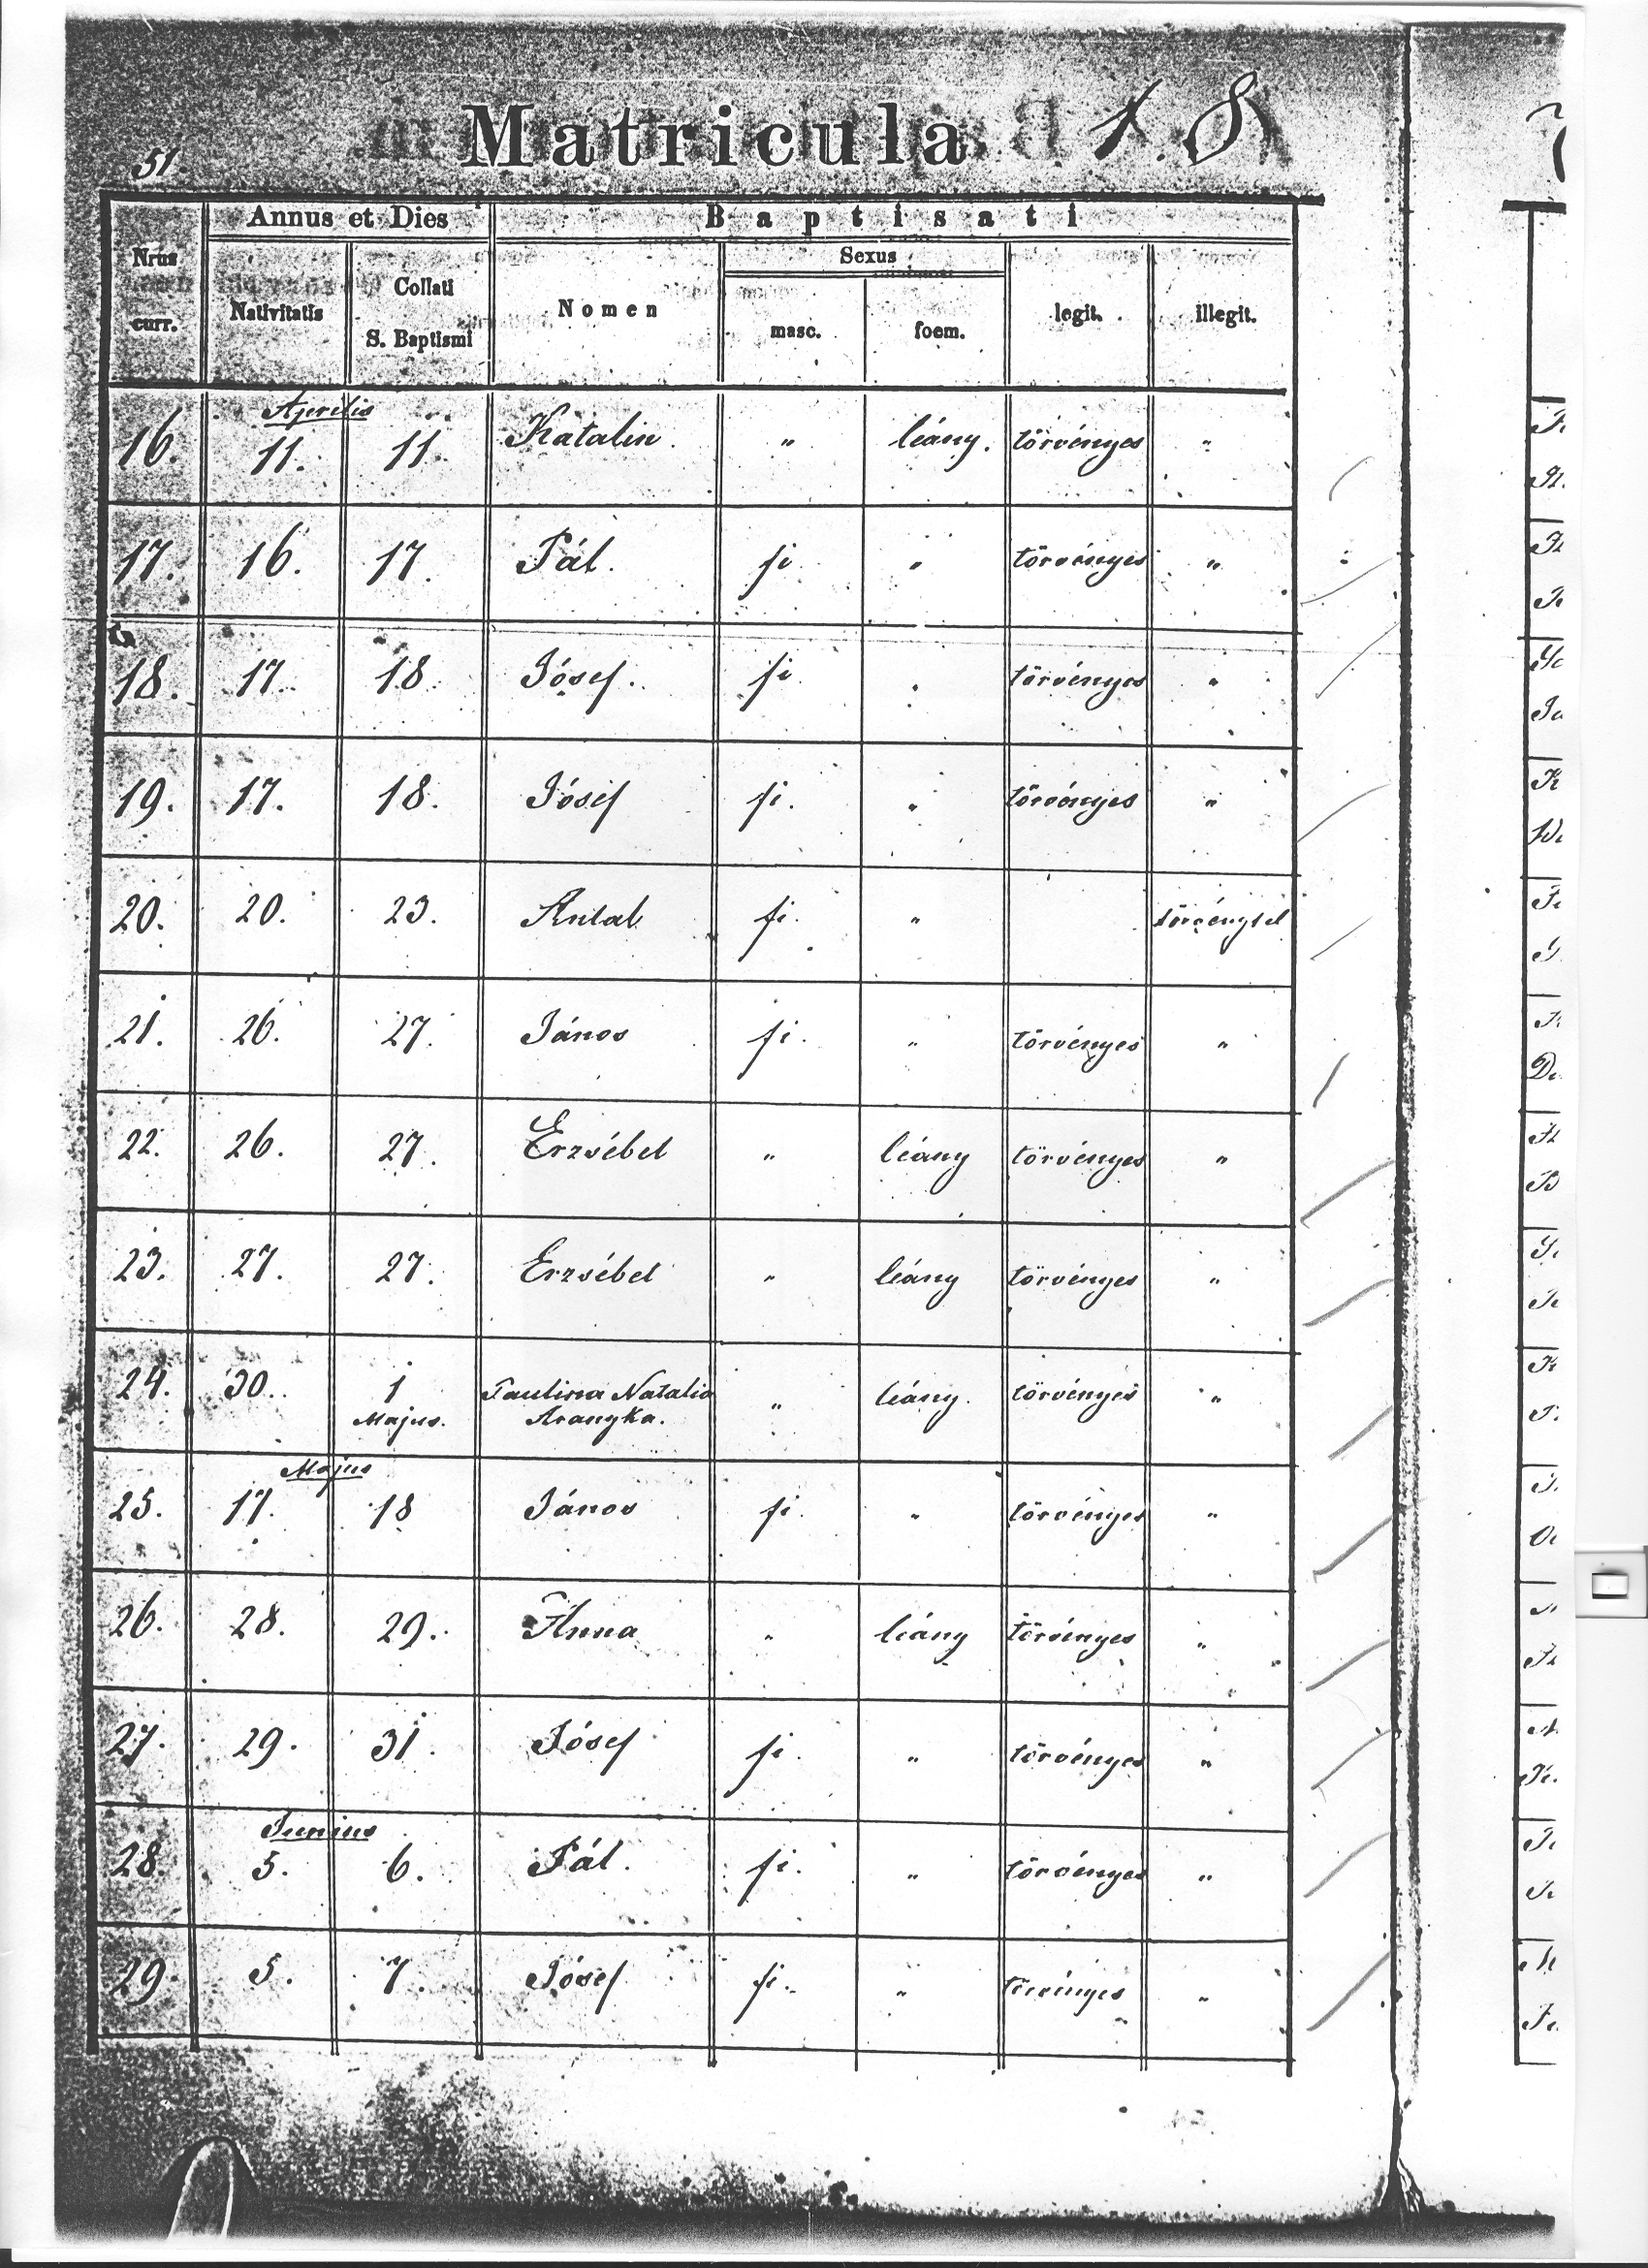 51. Matricula 18
Annus et Dies Baptisati
Nrus curr. Nativitatis Collati S. Baptismi Nomen Sexus masc. foem. legit. illegit.
Aprilis
16. 11. 11. Katalin. " leány. törvényes "
17. 16. 17. Pál. fi " törvényes "
18. 17. 18. Jósef. fi " törvényes "
19. 17. 18. Jósef fi. " törvényes "
20. 20. 23. Antal fi. " törvénytel
21. 26. 27. János fi. " törvényes "
22. 26. 27. Erzsébet " leány törvényes "
23. 27. 27. Erzsébet " leány törvényes "
24. 30. 1 Paulina Natalia " leány. törvényes "
Majus. Aranyka.
Majus
25. 17. 18 János fi. " törvényes "
26. 28. 29. Anna " leány törvényes "
27. 29. 31. Jósef fi. " törvényes "
Junius
28. 5. 6. Pál. fi. " törvényes "
29. 5. 7. Jósef fi. " törvényes "